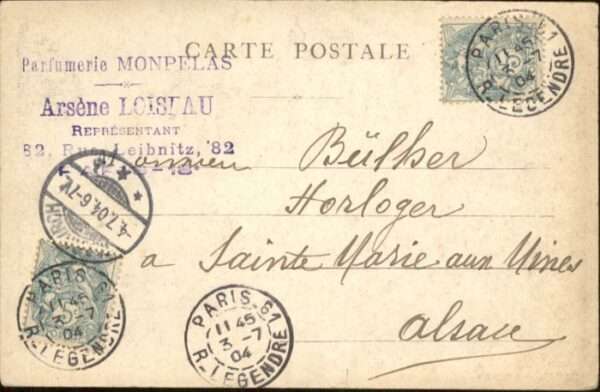 CARTE POSTALE
Parfumerie MONPELAS
Arsène LOISEAU
REPRÉSENTANT
82, Rue Leibnitz, 82
Bülher
Horloger
a Sainte Marie aux Mines
Alsace
PARIS 61
11 45
3 -7
04
R. LEGENDRE
4.7.04.6-7V.
PARIS 61
11 45
3 -7
04
R. LEGENDRE
PARIS 61
11 45
3 -7
04
R. LEGENDRE